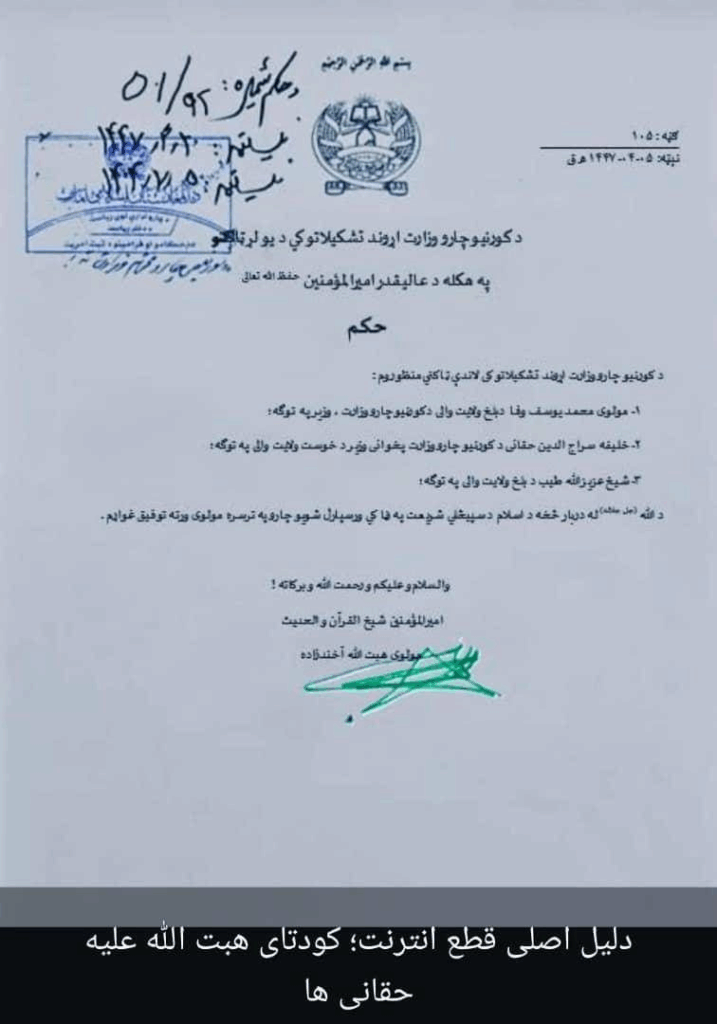 بسم الله الرحمن الرحیم
ګڼه: ۱۰۵
نېټه: ۰۵-۰۴-۱۴۴۷ هـ ق
د حکم شمېره: ۵۱/۹۲
د کورنیو چارو وزارت اړوند تشکیلاتو کي د یو لړ ټاکنو
په هکله د عالیقدر امیرالمؤمنین حفظه الله تعالی
حکم
د کورنیو چارو وزارت اړوند تشکیلاتو کی لاندي ټاکني منظوروم:
۱- مولوی محمد یوسف وفا د بلخ ولایت والی د کورنیو چارو وزارت، وزیر په توګه؛
۲- خلیفه سراج الدین حقانی د کورنیو چارو وزارت پخوانی وزیر د خوست ولایت والی په توګه؛
۳- شیخ عزیزالله طیب د بلخ ولایت والی په توګه؛
د الله (جل جلاله) له دربار څخه د اسلام د سپېڅلي شریعت په رڼا کي ورسپارل شویو چارو په ترسره مولوی ورته توفیق غواړم.
والسلام و علیکم و رحمت الله و برکاته!
امیرالمؤمنین شیخ القرآن و الحدیث
مولوی هبت الله آخندزاده
دلیل اصلی قطع انترنت؛ کودتای هبت الله علیه
حقانی ها